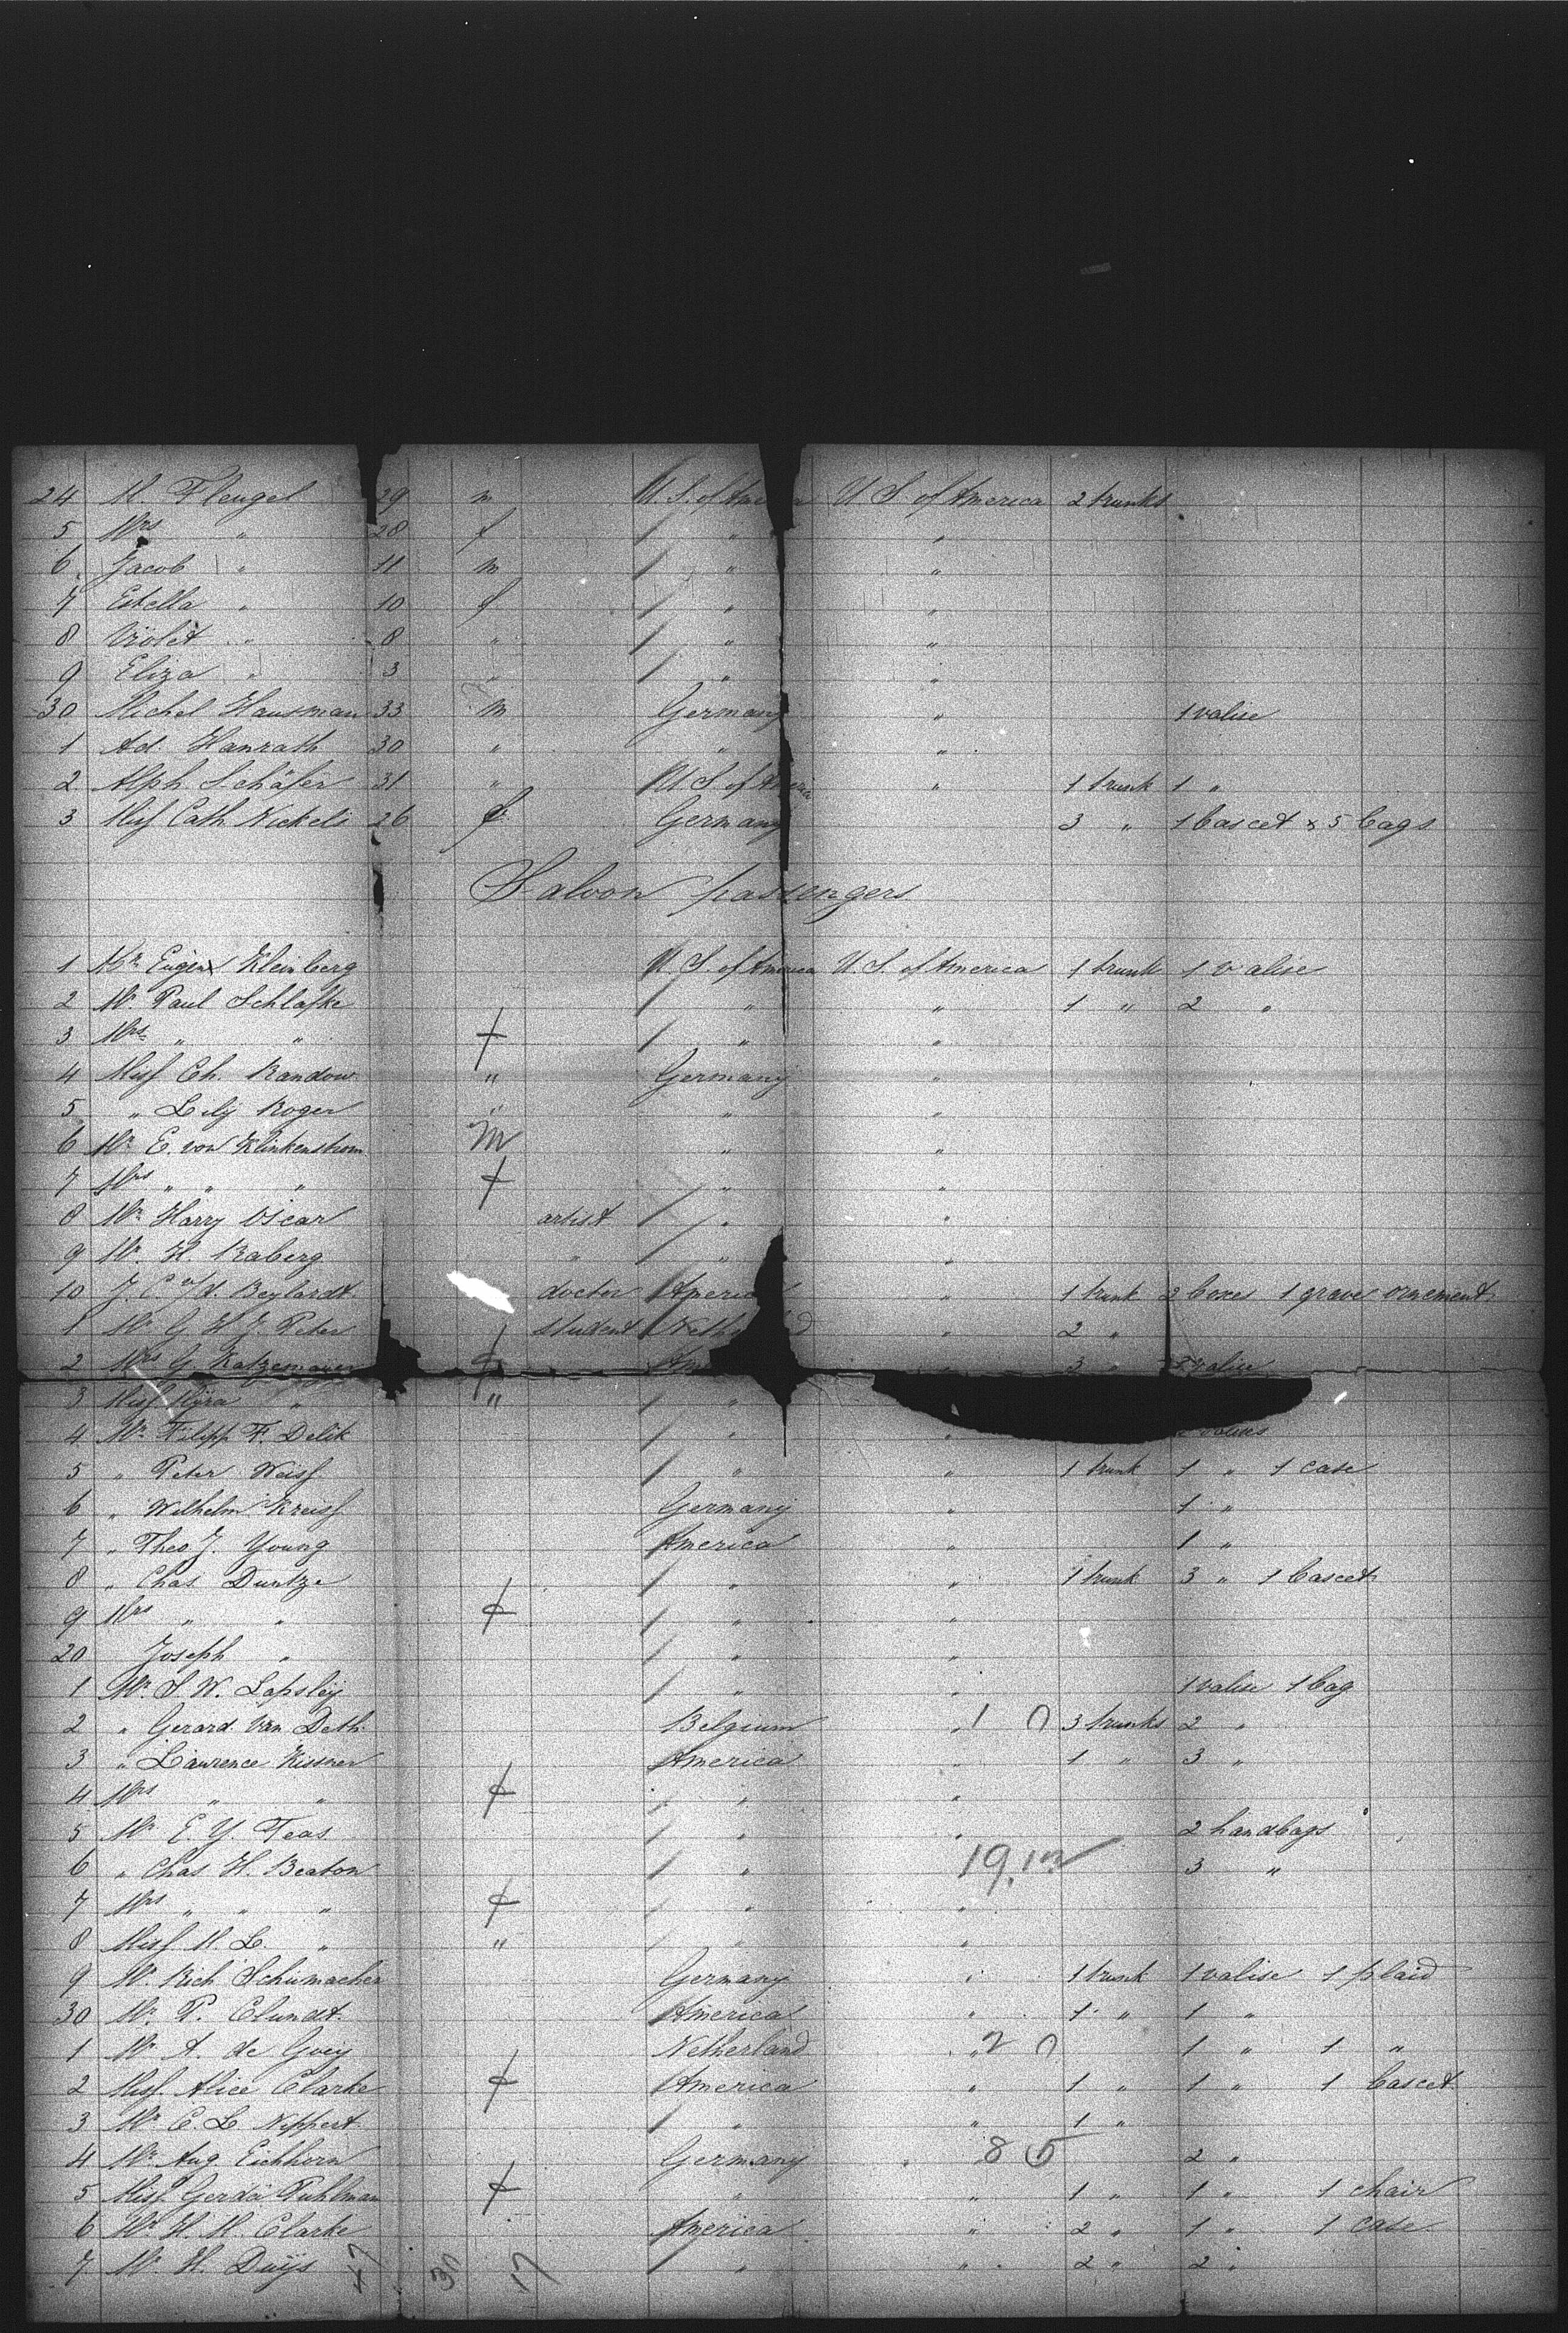 24 M. Flengel 29 m U.S. of America U.S. of America 2 trunks
5 Mrs " 28 f " "
6 Jacob " 11 m " "
7 Estella " 10 f " "
8 Violet " 8 " " "
9 Eliza " 3 " " "
30 Michel Hausman 33 m Germany " 1 valise
1 Ad. Hanrath 30 " " "
2 Alph. Schäfer 31 " U.S. of America " 1 trunk 1 "
3 Miss Cath Nickels 26 f Germany 3 " 1 bascet & 5 bags
Saloon passengers
1 Mr. Eugen Kleinberg U.S. of America U.S. of America 1 trunk 1 valise
2 Mr. Paul Schlafke " " 1 " 2 "
3 Mrs. " " f " "
4 Miss Ch. Randow " Germany "
5 " Lily Roger " " "
6 Mr. E. von Klinkenstrom M " "
7 Mrs " " " f " "
8 Mr. Harry Oscar artist " "
9 Mr. H. Raberg " " "
10 J. C. v/d. Beylardt doctor America " 1 trunk 2 boxes 1 grave ornement
1 Mr. G. H. J. Peter student Neth d " 2 "
2 Mrs G. Katzemayer f Am " 3 " valise
3 Miss Myra " " "
4 Mr. Filipp F. Delik " " valises
5 " Peter Weiss " " 1 trunk 1 " 1 case
6 " Wilhelm Kreiss Germany " 1 "
7 " Theo J. Young America " 1 "
8 " Chas. Duntze " " 1 trunk 3 " 1 bascet
9 Mrs " " f " "
20 Joseph " " "
1 Mr. S. W. Lapsley " " 1 valise 1 bag
2 " Gerard Van Deth Belgium " 1 0 3 trunks 2 "
3 " Lawrence Kissner America " 1 " 3 "
4 Mrs " " f " "
5 Mr E. Y. Teas " " 2 handbags
6 " Chas H. Beaton " 19. 3 "
7 Mrs " " " f " "
8 Miss M. L. " " " "
9 Mr. Rich Schumacher Germany " 1 trunk 1 valise 1 plaid
30 Mr. P. Clundt America " 1 " 1 "
1 Mr. A. de Goey Netherland " 2 0 1 " 1 "
2 Miss. Alice Clarke f America " 1 " 1 " 1 bascet
3 Mr. C. L. Nippert " " 1 "
4 Mr. Aug. Eichhorn Germany " 8 5 2 "
5 Miss Gerda Puhlman f " " 1 " 1 " 1 chair
6 Mr. H. M. Clarke America " 2 " 1 " 1 case
7 Mr. H. Duijs 47 30 17 " " 2 " 2 "